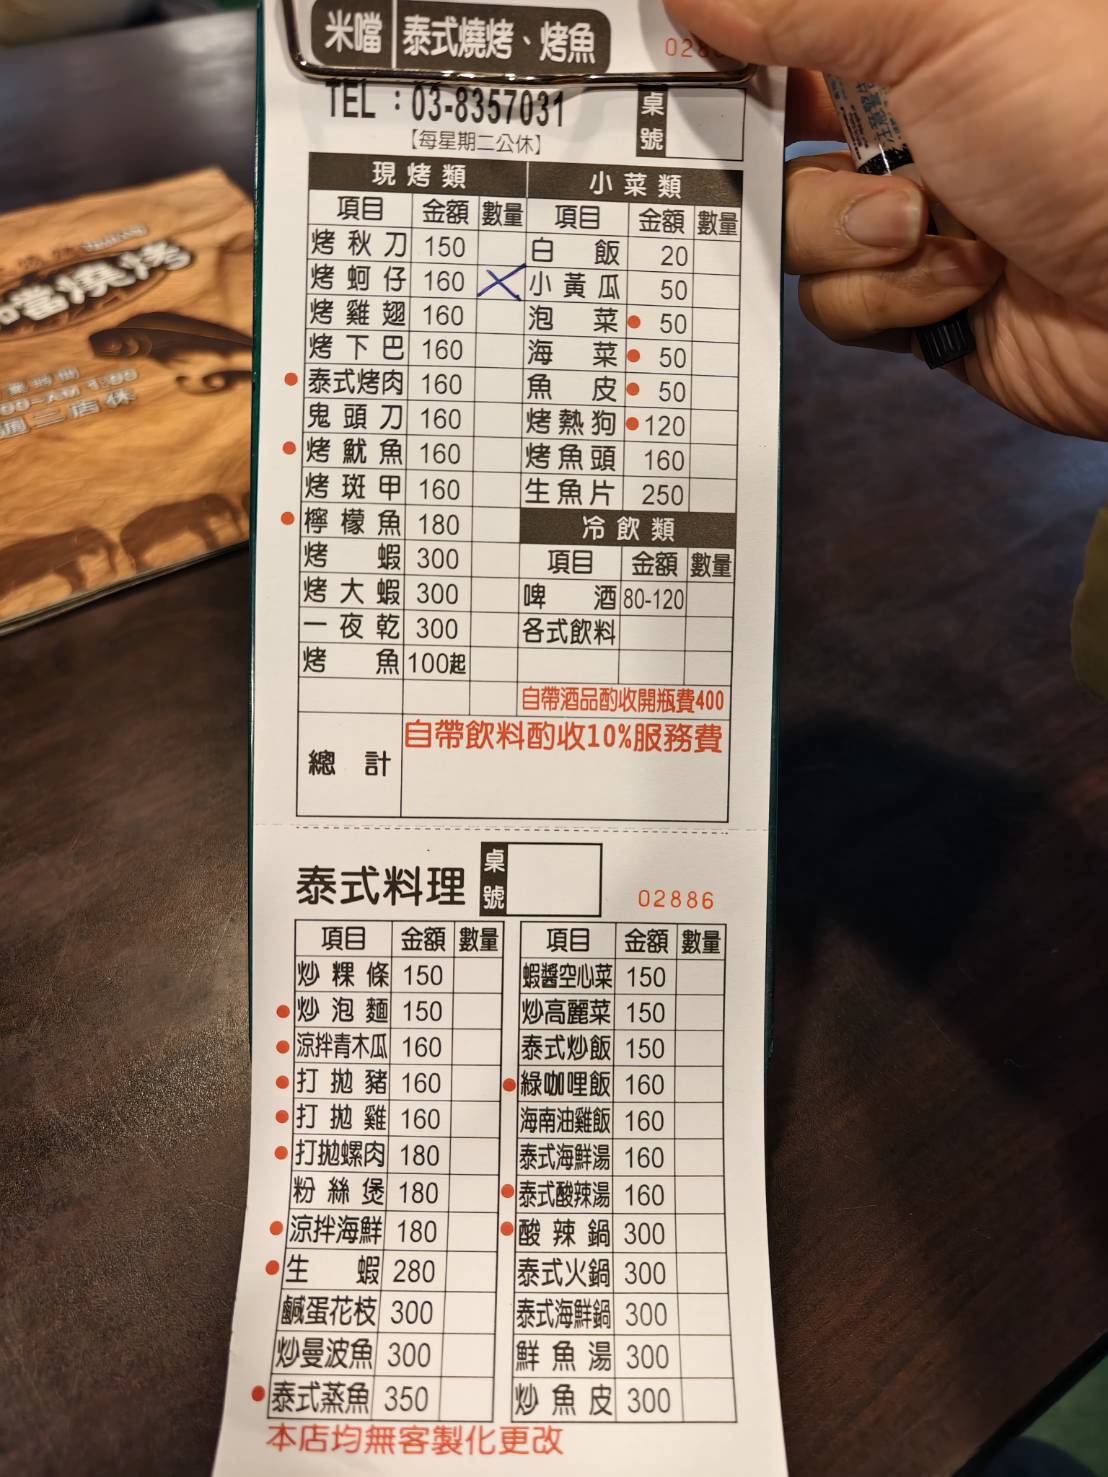 米噹 泰式燒烤、烤魚
TEL：03-8357031
【每星期二公休】
桌號
現烤類
項目 金額 數量
烤秋刀 150
烤蚵仔 160
烤雞翅 160
烤下巴 160
泰式烤肉 160
鬼頭刀 160
烤魷魚 160
烤斑甲 160
檸檬魚 180
烤蝦 300
烤大蝦 300
一夜乾 300
烤魚 100起
小菜類
項目 金額 數量
白飯 20
小黃瓜 50
泡菜 50
海菜 50
魚皮 50
烤熱狗 120
烤魚頭 160
生魚片 250
冷飲類
項目 金額 數量
啤酒 80-120
各式飲料
自帶酒品酌收開瓶費400
自帶飲料酌收10%服務費
總計
泰式料理
桌號
02886
項目 金額 數量
炒粿條 150
炒泡麵 150
涼拌青木瓜 160
打拋豬 160
打拋雞 160
打拋螺肉 180
粉絲煲 180
涼拌海鮮 180
生蝦 280
鹹蛋花枝 300
炒曼波魚 300
泰式蒸魚 350
項目 金額 數量
蝦醬空心菜 150
炒高麗菜 150
泰式炒飯 150
綠咖哩飯 160
海南油雞飯 160
泰式海鮮湯 160
泰式酸辣湯 160
酸辣鍋 300
泰式火鍋 300
泰式海鮮鍋 300
鮮魚湯 300
炒魚皮 300
本店均無客製化更改